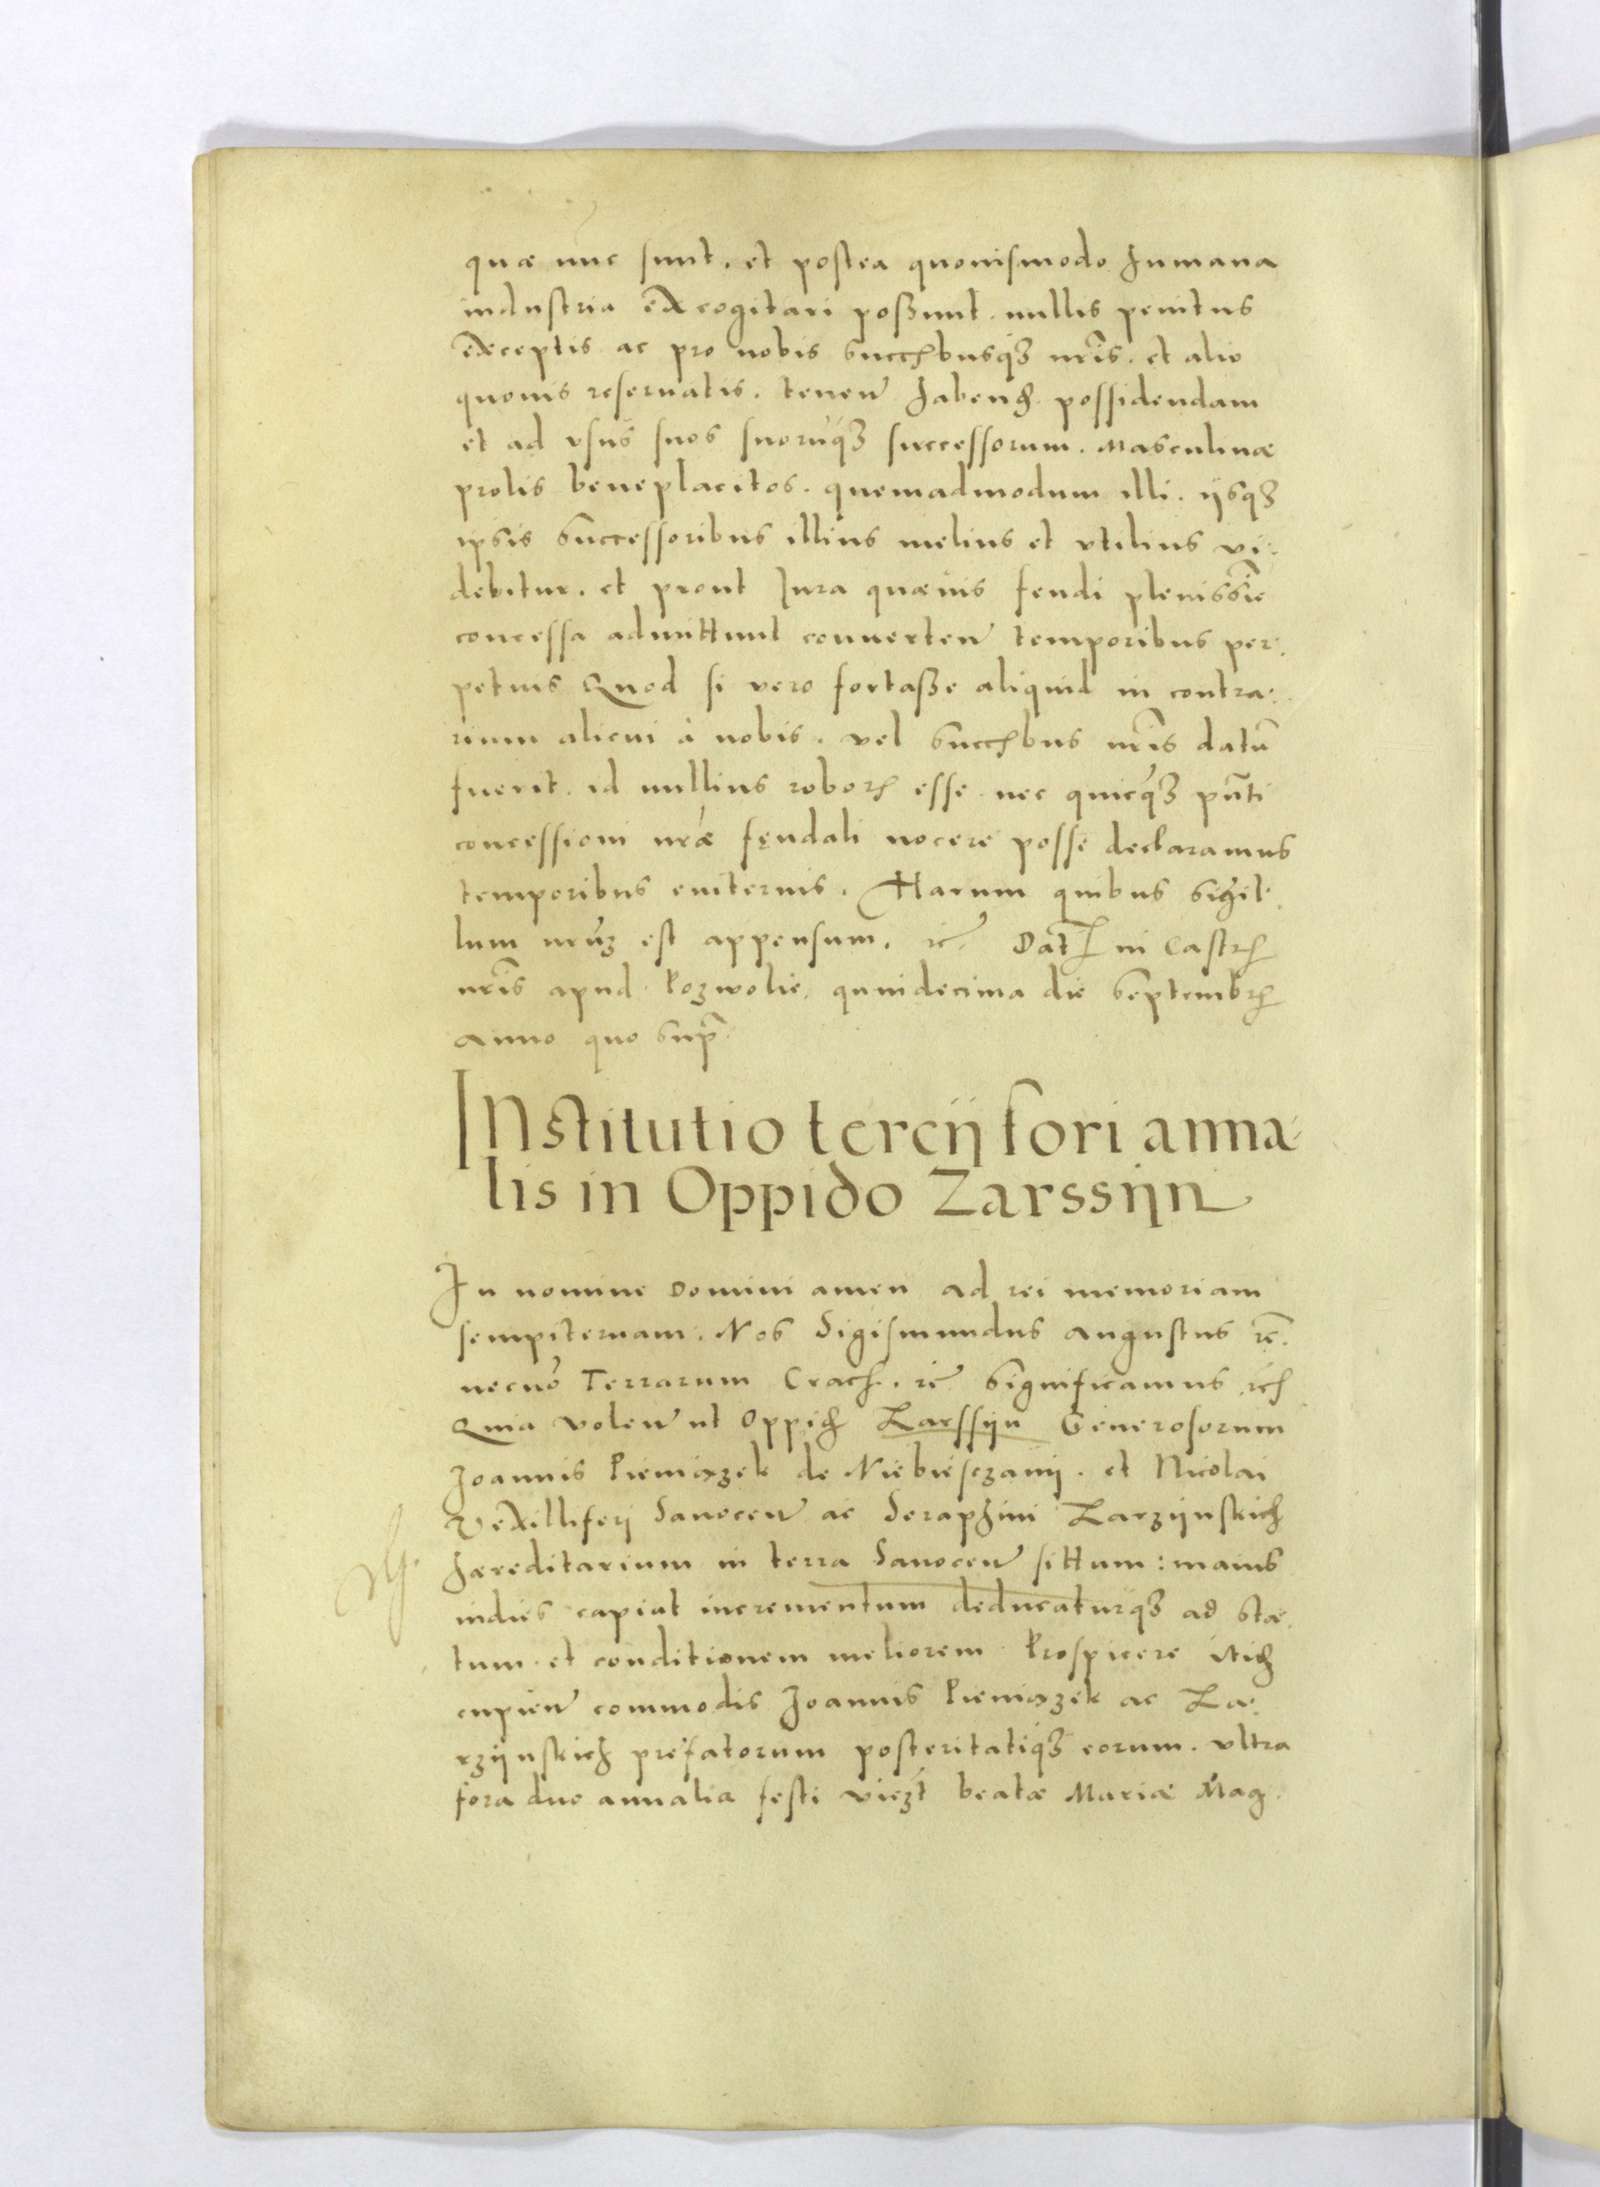 quæ nuc sunt. et postea quouismodo humana
industria excogitari possunt. nullis penitus
exceptis ac pro nobis succbusq3 nris. et alio
quouis reseruatis. tenen habend possidendam
et ad vsus suos suoruq3 successorum. Masculinæ
prolis beneplacitos. quemadmodum illi. ijsq3
ipsis Successoribus illius melius et vtilius vi-
debitur. et prout Jura quæuis feudi plenissie
concessa admittunt conuerten temporibus per-
petuis Quod si vero fortasse aliquid in contra-
rium alicui à nobis. vel succbus nris datū
fuerit. id nullius robor esse nec quicq3 pnti
concessioni nræ feudali nocere posse declaramus
temporibus euiternis. Harum quibus sigil-
lum nrūm est appensum. rc. Dat in Castr
nris apud Pozwolie. quindecima die Septembr
anno quo supra
Institutio tercij fori annа-
lis in Oppido Zarssijn
In nomine Domini amen ad rei memoriam
sempiternam. Nos Sigismundus Augustus rc.
necnō Terrarum Crach. rc Significamus rc
Quia volen ut Oppid Zarssijn Generosorum
Joannis Pieniązek de Niebiesczanij. et Nicolai
Vexilliferj Sanocen ac Seraphini Zarzijnskich
hæreditarium in terra Sanocen sittum: maius
indies capiat incrementum deducaturq3 ad sta-
tum et conditionem meliorem Prospicere itid
cupien commodis Joannis Pieniązek ac Za-
rzijnskich prefatorum posteritatiq3 eorum. vltra
fora duo annalia festi vicz beatæ Mariæ Mag-